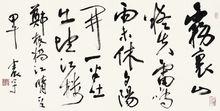 霧裹山
疑失雷鳴
雨未休夕陽
開一半
吐出望江樓
鄭板橋江晴
甲午